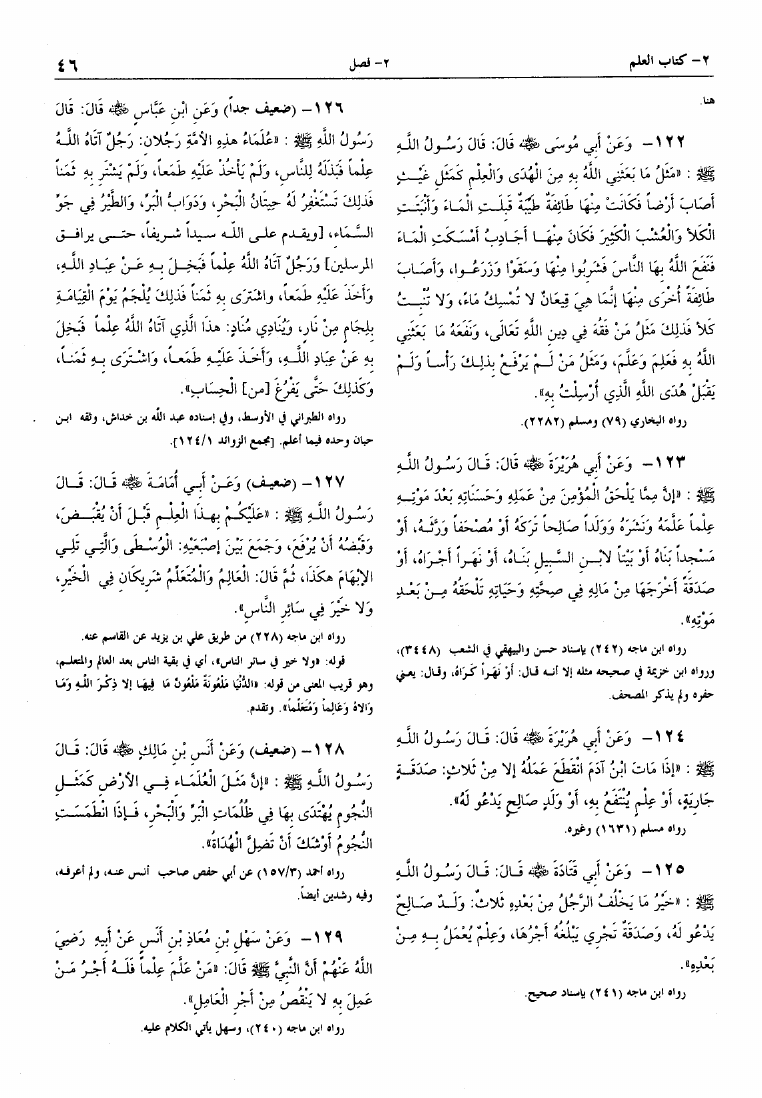 ٢- كتاب العلم ٢- فصل ٤٦
هنا.
١٢٢- وَعَنْ أَبِي مُوسَى ﷺ قَالَ: قَالَ رَسُولُ اللَّهِ
ﷺ : «مَثَلُ مَا بَعَثَنِي اللَّهُ بِهِ مِنَ الْهُدَى وَالْعِلْمِ كَمَثَلِ غَيْثٍ
أَصَابَ أَرْضاً فَكَانَتْ مِنْهَا طَائِفَةٌ طَيِّبَةٌ قَبِلَتِ الْمَاءَ وَأَنْبَتَتِ
الْكَلأَ وَالْعُشْبَ الْكَثِيرَ فَكَانَ مِنْهَا أَجَادِبُ أَمْسَكَتِ الْمَاءَ
فَنَفَعَ اللَّهُ بِهَا النَّاسَ فَشَرِبُوا مِنْهَا وَسَقَوْا وَزَرَعُوا، وَأَصَابَ
طَائِفَةً أُخْرَى مِنْهَا إِنَّمَا هِيَ قِيعَانٌ لاَ تُمْسِكُ مَاءً، وَلاَ تُنْبِتُ
كَلأً فَذَلِكَ مَثَلُ مَنْ فَقُهَ فِي دِينِ اللَّهِ تَعَالَى، وَنَفَعَهُ مَا بَعَثَنِي
اللَّهُ بِهِ فَعَلِمَ وَعَلَّمَ، وَمَثَلُ مَنْ لَمْ يَرْفَعْ بِذَلِكَ رَأْساً وَلَمْ
يَقْبَلْ هُدَى اللَّهِ الَّذِي أُرْسِلْتُ بِهِ».
رواه البخاري (٧٩) ومسلم (٢٢٨٢).
١٢٣- وَعَنْ أَبِي هُرَيْرَةَ ﷺ قَالَ: قَالَ رَسُولُ اللَّهِ
ﷺ : «إِنَّ مِمَّا يَلْحَقُ الْمُؤْمِنَ مِنْ عَمَلِهِ وَحَسَنَاتِهِ بَعْدَ مَوْتِهِ
عِلْماً عَلَّمَهُ وَنَشَرَهُ وَوَلَداً صَالِحاً تَرَكَهُ أَوْ مُصْحَفاً وَرَّثَهُ، أَوْ
مَسْجِداً بَنَاهُ أَوْ بَيْتاً لاِبْنِ السَّبِيلِ بَنَاهُ، أَوْ نَهَراً أَجْرَاهُ، أَوْ
صَدَقَةً أَخْرَجَهَا مِنْ مَالِهِ فِي صِحَّتِهِ وَحَيَاتِهِ تَلْحَقُهُ مِنْ بَعْدِ
مَوْتِهِ».
رواه ابن ماجه (٢٤٢) بإسناد حسن والبيهقي في الشعب (٣٤٤٨)،
ورواه ابن خزيمة في صحيحه مثله إلا أنه قال: أَوْ نَهْراً كَرَاهُ، وقال: يعني
حفره ولم يذكر المصحف.
١٢٤- وَعَنْ أَبِي هُرَيْرَةَ ﷺ قَالَ: قَالَ رَسُولُ اللَّهِ
ﷺ : «إِذَا مَاتَ ابْنُ آدَمَ انْقَطَعَ عَمَلُهُ إِلاَ مِنْ ثَلاثٍ: صَدَقَةٍ
جَارِيَةٍ، أَوْ عِلْمٍ يُنْتَفَعُ بِهِ، أَوْ وَلَدٍ صَالِحٍ يَدْعُو لَهُ».
رواه مسلم (١٦٣١) وغيره.
١٢٥- وَعَنْ أَبِي قَتَادَةَ ﷺ قَالَ: قَالَ رَسُولُ اللَّهِ
ﷺ : «خَيْرُ مَا يَخْلُفُ الرَّجُلُ مِنْ بَعْدِهِ ثَلاثٌ: وَلَدٌ صَالِحٌ
يَدْعُو لَهُ، وَصَدَقَةٌ تَجْرِي يَبْلُغُهُ أَجْرُهَا، وَعِلْمٌ يُعْمَلُ بِهِ مِنْ
بَعْدِهِ».
رواه ابن ماجه (٢٤١) بإسناد صحيح.
١٢٦- (ضعيف جداً) وَعَنِ ابْنِ عَبَّاسٍ ﷺ قَالَ: قَالَ
رَسُولُ اللَّهِ ﷺ : «عُلَمَاءُ هذِهِ الأُمَّةِ رَجُلانِ: رَجُلٌ آتَاهُ اللَّهُ
عِلْماً فَبَذَلَهُ لِلنَّاسِ، وَلَمْ يَأْخُذْ عَلَيْهِ طَمَعاً، وَلَمْ يَشْتَرِ بِهِ ثَمَناً
فَذلِكَ تَسْتَغْفِرُ لَهُ حِيتَانُ الْبَحْرِ، وَدَوَابُّ الْبَرِّ، وَالطَّيْرُ فِي جَوِّ
السَّمَاءِ، [ويقدم على الله سيداً شريفاً، حتى يرافق
المرسلين] وَرَجُلٌ آتَاهُ اللَّهُ عِلْماً فَبَخِلَ بِهِ عَنْ عِبَادِ اللَّهِ،
وَأَخَذَ عَلَيْهِ طَمَعاً، وَاشْتَرَى بِهِ ثَمَناً فَذلِكَ يُلْجَمُ يَوْمَ الْقِيَامَةِ
بِلِجَامٍ مِنْ نَارٍ، وَيُنَادِي مُنَادٍ: هذَا الَّذِي آتَاهُ اللَّهُ عِلْماً فَبَخِلَ
بِهِ عَنْ عِبَادِ اللَّهِ، وَأَخَذَ عَلَيْهِ طَمَعاً، وَاشْتَرَى بِهِ ثَمَناً،
وَكَذلِكَ حَتَّى يَفْرُغَ [من] الْحِسَابِ».
رواه الطبراني في الأوسط، وفي إسناده عبد الله بن خداش، وثقه ابن
حبان وحده فيما أعلم. [مجمع الزوائد ١/١٢٤].
١٢٧- (ضعيف) وَعَنْ أَبِي أُمَامَةَ ﷺ قَالَ: قَالَ
رَسُولُ اللَّهِ ﷺ : «عَلَيْكُمْ بِهذَا الْعِلْمِ قَبْلَ أَنْ يُقْبَضَ،
وَقَبْضُهُ أَنْ يُرْفَعَ، وَجَمَعَ بَيْنَ إِصْبَعَيْهِ: الْوُسْطَى وَالَّتِي تَلِي
الإِبْهَامَ هكَذَا، ثُمَّ قَالَ: الْعَالِمُ وَالْمُتَعَلِّمُ شَرِيكَانِ فِي الْخَيْرِ،
وَلاَ خَيْرَ فِي سَائِرِ النَّاسِ».
رواه ابن ماجه (٢٢٨) من طريق علي بن يزيد عن القاسم عنه.
قوله: «ولا خير في سائر الناس»، أي في بقية الناس بعد العالم والمتعلم،
وهو قريب المعنى من قوله: «الدُّنْيَا مَلْعُونَةٌ مَلْعُونٌ مَا فِيهَا إِلا ذِكْرَ اللَّهِ وَمَا
وَالاَهُ وَعَالِماً وَمُتَعَلِّماً». وتقدم.
١٢٨- (ضعيف) وَعَنْ أَنَسِ بْنِ مَالِكٍ ﷺ قَالَ: قَالَ
رَسُولُ اللَّهِ ﷺ : «إِنَّ مَثَلَ الْعُلَمَاءِ فِي الأَرْضِ كَمَثَلِ
النُّجُومِ يُهْتَدَى بِهَا فِي ظُلُمَاتِ الْبَرِّ وَالْبَحْرِ، فَإِذَا انْطَمَسَتِ
النُّجُومُ أَوْشَكَ أَنْ تَضِلَّ الْهُدَاةُ».
رواه أحمد (٣/١٥٧) عن أبي حفص صاحب أنس عنه، ولم أعرفه،
وفيه رشدين أيضاً.
١٢٩- وَعَنْ سَهْلِ بْنِ مُعَاذِ بْنِ أَنَسٍ عَنْ أَبِيهِ رَضِيَ
اللَّهُ عَنْهُمْ أَنَّ النَّبِيَّ ﷺ قَالَ: «مَنْ عَلَّمَ عِلْماً فَلَهُ أَجْرُ مَنْ
عَمِلَ بِهِ لاَ يَنْقُصُ مِنْ أَجْرِ الْعَامِلِ».
رواه ابن ماجه (٢٤٠)، وسهل يأتي الكلام عليه.